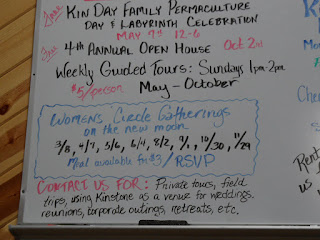 2nd KIN DAY FAMILY PERMACULTURE
DAY & LABYRINTH CELEBRATION
MAY 7th 12-6
3rd 4th ANNUAL OPEN HOUSE Oct 2nd
Weekly Guided Tours: Sundays 1pm-2pm
$5/person May - October
WOMENS Circle Gatherings
on the new moon
3/8, 4/7, 5/6, 6/4, 8/2, 9/1, 10/30, 11/29
meal available for $3/ RSVP
CONTACT US FOR: Private tours, field
trips, using Kinstone as a venue for weddings,
reunions, corporate outings, retreats, etc.
Rent
us